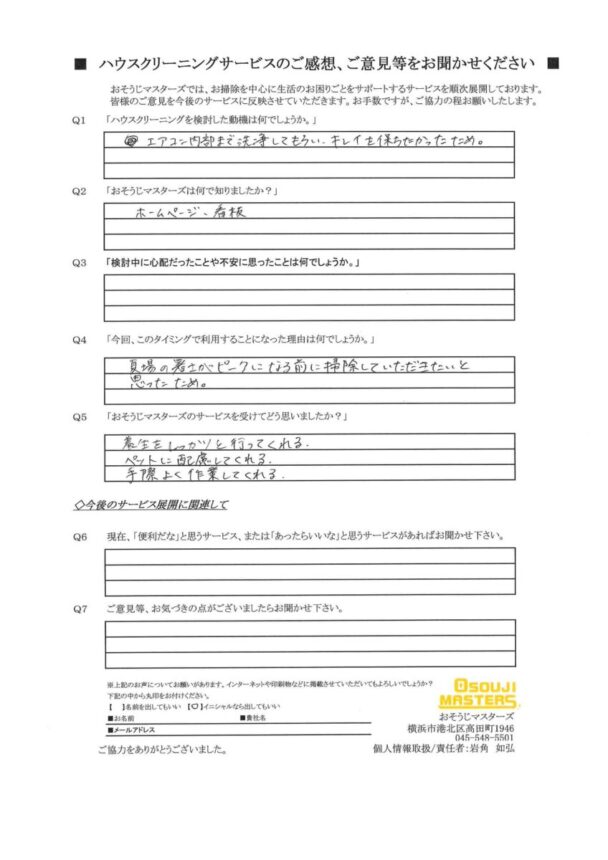 ■ ハウスクリーニングサービスのご感想、ご意見等をお聞かせください ■
おそうじマスターズでは、お掃除を中心に生活のお困りごとをサポートするサービスを順次展開しております。
皆様のご意見を今後のサービスに反映させていただきます。お手数ですが、ご協力の程お願いしたします。
Q1 「ハウスクリーニングを検討した動機は何でしょうか。」
エアコン内部まで洗浄してもらい、キレイを保ちたかったため。
Q2 「おそうじマスターズは何で知りましたか？」
ホームページ、看板
Q3 「検討中に心配だったことや不安に思ったことは何でしょうか。」
Q4 「今回、このタイミングで利用することになった理由は何でしょうか。」
夏場の暑さがピークになる前に掃除していただきたいと
思ったため。
Q5 「おそうじマスターズのサービスを受けてどう思いましたか？」
養生をしっかりと行ってくれる.
ペットに配慮してくれる.
手際よく作業してくれる.
◇今後のサービス展開に関連して
Q6 現在、「便利だな」と思うサービス、または「あったらいいな」と思うサービスがあればお聞かせ下さい。
Q7 ご意見等、お気づきの点がございましたらお聞かせ下さい。
※上記のお声についてお願いがあります。インターネットや印刷物などに掲載させていただいてもよろしいでしょうか？
下記の中から丸印をお付けください。
【 】名前を出してもいい 【○】イニシャルなら出してもいい
■お名前 ■貴社名
■メールアドレス
ご協力をありがとうございました。
OSOUJI
MASTERS
おそうじマスターズ
横浜市港北区高田町1946
045-548-5501
個人情報取扱/責任者:岩角 如弘